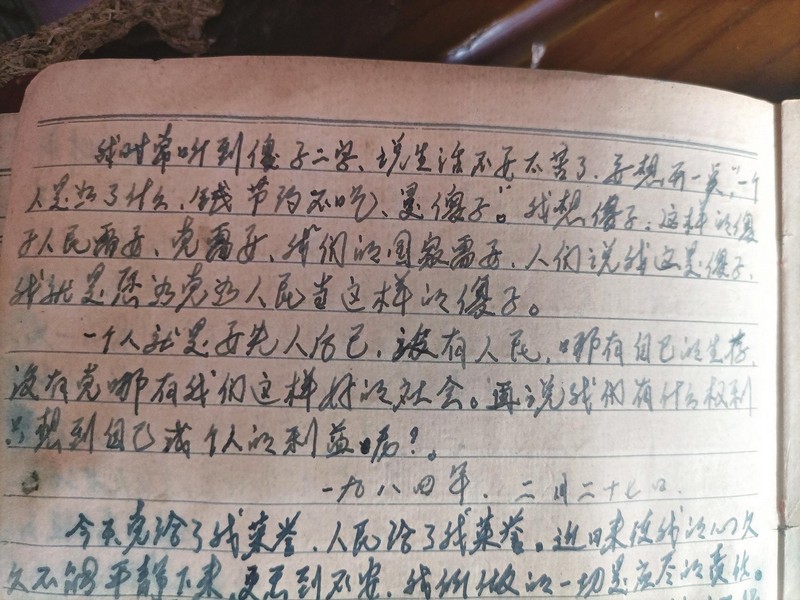 我时常听到傻子二字、说生活不要太苦了，要想开一点，"一个
人是为了什么，钱节约不吃、是傻子"。我想傻子：这样的傻
子人民需要、党需要，我们的国家需要，人们说我这是傻子，
我就是愿为党为人民当这样的傻子。
一个人就是要先人后己，没有人民，哪有自己的生存，
没有党哪有我们这样好的社会。再说我们有什么权利
只想到自己或个人的利益呢？。
一九八四年．二月二十七日．
今天党给了我荣誉，人民给了我荣誉。近日来使我的心久
久不能平静下来，更感到不安，我们做的一切是应尽的责任。